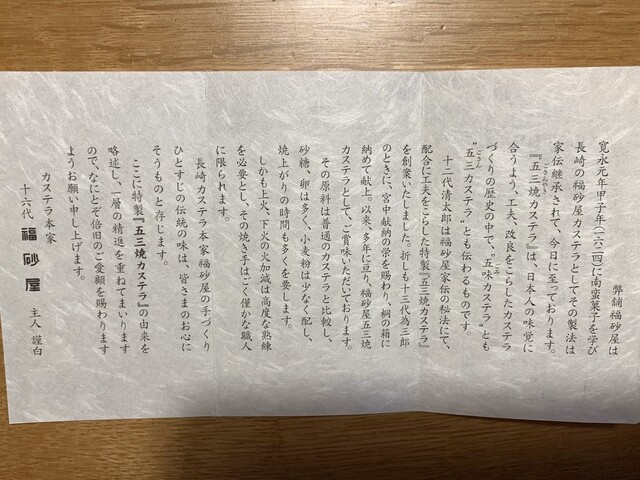 弊舗福砂屋は
寛永元年甲子年(一六二四)に南蛮菓子を学び
長崎の福砂屋カステラとしてその製法は
家伝継承されて、今日に至っております。
『五三焼カステラ』は、日本人の味覚に
合うよう、工夫、改良をこらしたカステラ
づくりの歴史の中で、“五味カステラ”とも
“五三カステラ”とも伝わるものです。
十二代清太郎は福砂屋家伝の秘法にて、
配合に工夫をこらした特製『五三焼カステラ』
を創業いたしました。折しも十三代為三郎
のときに、宮中献納の栄を賜わり、桐の箱に
納めて献上。以来、多年に亘り、福砂屋五三焼
カステラとして、ご賞味いただいております。
その原料は普通のカステラと比較し、
砂糖、卵は多く、小麦粉は少なく配し、
焼上がりの時間も多くを要します。
しかも上火、下火の火加減は高度な熟練
を必要とし、その焼き手はごく僅かな職人
に限られます。
長崎カステラ本家福砂屋の手づくり
ひとすじの伝統の味は、皆さまのお心に
そうものと存じます。
ここに特製『五三焼カステラ』の由来を
略述し、一層の精進を重ねてまいります
ので、なにとぞ倍旧のご愛顧を賜わります
ようお願い申し上げます。
カステラ本家
十六代 福砂屋 主人 謹白